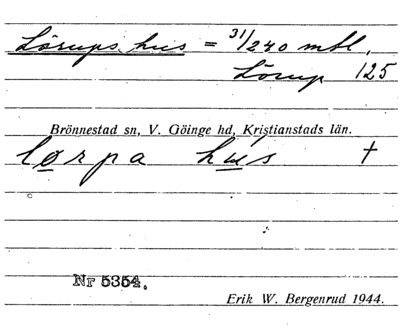 Lörups hus = 31/240 mtl,
Lörup 125
Brönnestad sn, V. Göinge hd, Kristianstads län.
lørpa hus †
Nr 5354.
Erik W. Bergenrud 1944.